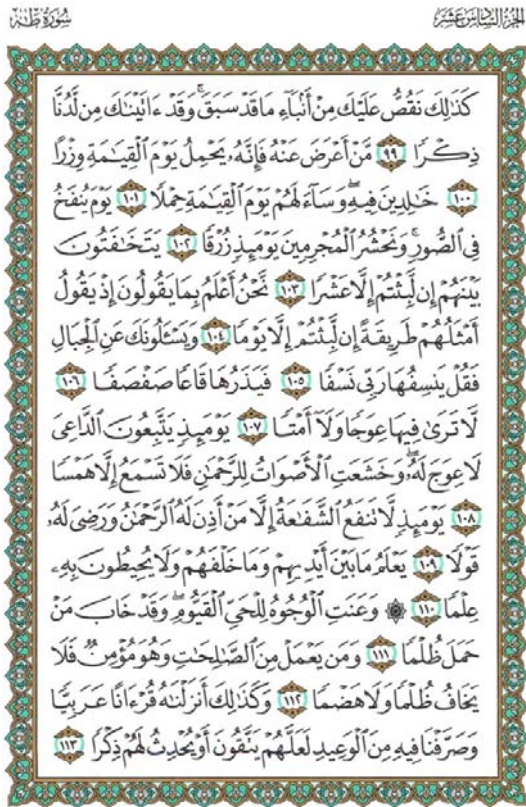 الجزء السادس عشر
سورة طه
كَذَٰلِكَ نَقُصُّ عَلَيْكَ مِنْ أَنۢبَآءِ مَا قَدْ سَبَقَ ۚ وَقَدْ ءَاتَيْنَٰكَ مِن لَّدُنَّا
ذِكْرًا ٩٩ مَّنْ أَعْرَضَ عَنْهُ فَإِنَّهُۥ يَحْمِلُ يَوْمَ ٱلْقِيَٰمَةِ وِزْرًا
١٠٠ خَٰلِدِينَ فِيهِ ۖ وَسَآءَ لَهُمْ يَوْمَ ٱلْقِيَٰمَةِ حِمْلًا ١٠١ يَوْمَ يُنفَخُ
فِى ٱلصُّورِ ۚ وَنَحْشُرُ ٱلْمُجْرِمِينَ يَوْمَئِذٍ زُرْقًا ١٠٢ يَتَخَٰفَتُونَ
بَيْنَهُمْ إِن لَّبِثْتُمْ إِلَّا عَشْرًا ١٠٣ نَّحْنُ أَعْلَمُ بِمَا يَقُولُونَ إِذْ يَقُولُ
أَمْثَلُهُمْ طَرِيقَةً إِن لَّبِثْتُمْ إِلَّا يَوْمًا ١٠٤ وَيَسْـَٔلُونَكَ عَنِ ٱلْجِبَالِ
فَقُلْ يَنسِفُهَا رَبِّى نَسْفًا ١٠٥ فَيَذَرُهَا قَاعًا صَفْصَفًا ١٠٦
لَّا تَرَىٰ فِيهَا عِوَجًا وَلَآ أَمْتًا ١٠٧ يَوْمَئِذٍ يَتَّبِعُونَ ٱلدَّاعِىَ
لَا عِوَجَ لَهُۥ ۖ وَخَشَعَتِ ٱلْأَصْوَاتُ لِلرَّحْمَٰنِ فَلَا تَسْمَعُ إِلَّا هَمْسًا
١٠٨ يَوْمَئِذٍ لَّا تَنفَعُ ٱلشَّفَٰعَةُ إِلَّا مَنْ أَذِنَ لَهُ ٱلرَّحْمَٰنُ وَرَضِىَ لَهُۥ
قَوْلًا ١٠٩ يَعْلَمُ مَا بَيْنَ أَيْدِيهِمْ وَمَا خَلْفَهُمْ وَلَا يُحِيطُونَ بِهِۦ
عِلْمًا ١١٠ ۞ وَعَنَتِ ٱلْوُجُوهُ لِلْحَىِّ ٱلْقَيُّومِ ۖ وَقَدْ خَابَ مَنْ
حَمَلَ ظُلْمًا ١١١ وَمَن يَعْمَلْ مِنَ ٱلصَّٰلِحَٰتِ وَهُوَ مُؤْمِنٌ فَلَا
يَخَافُ ظُلْمًا وَلَا هَضْمًا ١١٢ وَكَذَٰلِكَ أَنزَلْنَٰهُ قُرْءَانًا عَرَبِيًّا
وَصَرَّفْنَا فِيهِ مِنَ ٱلْوَعِيدِ لَعَلَّهُمْ يَتَّقُونَ أَوْ يُحْدِثُ لَهُمْ ذِكْرًا ١١٣